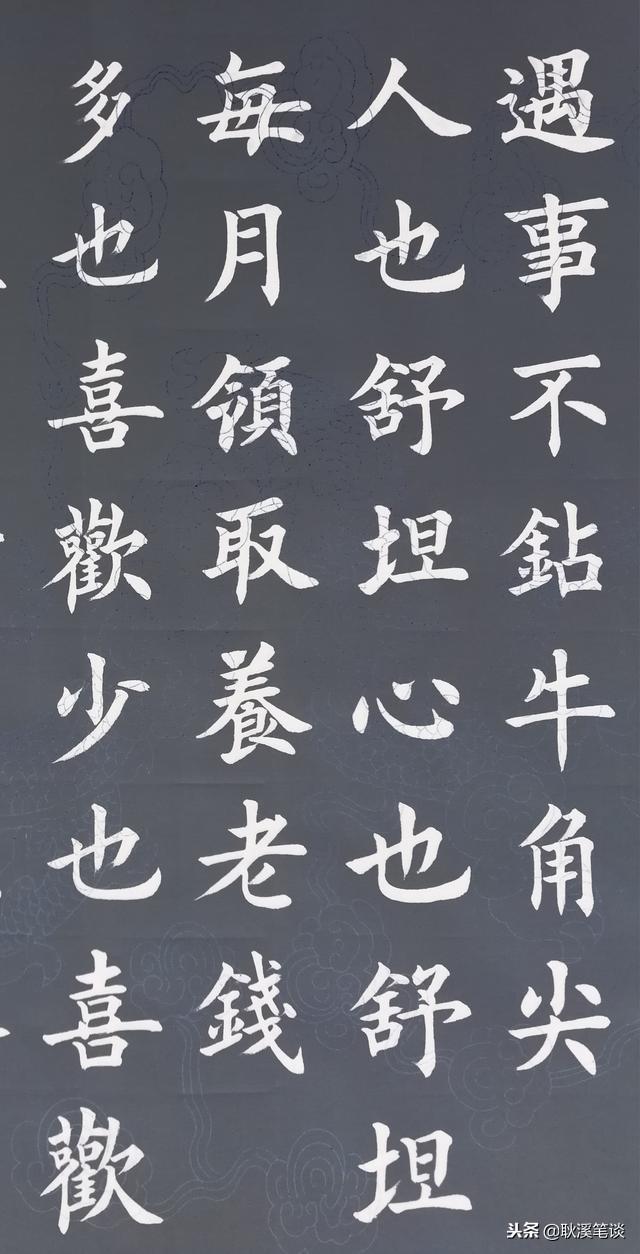 遇事不鉆牛角尖
人也舒坦心也舒坦
每月領取養老錢
多也喜歡少也喜歡
头条 @耿溪笔谈